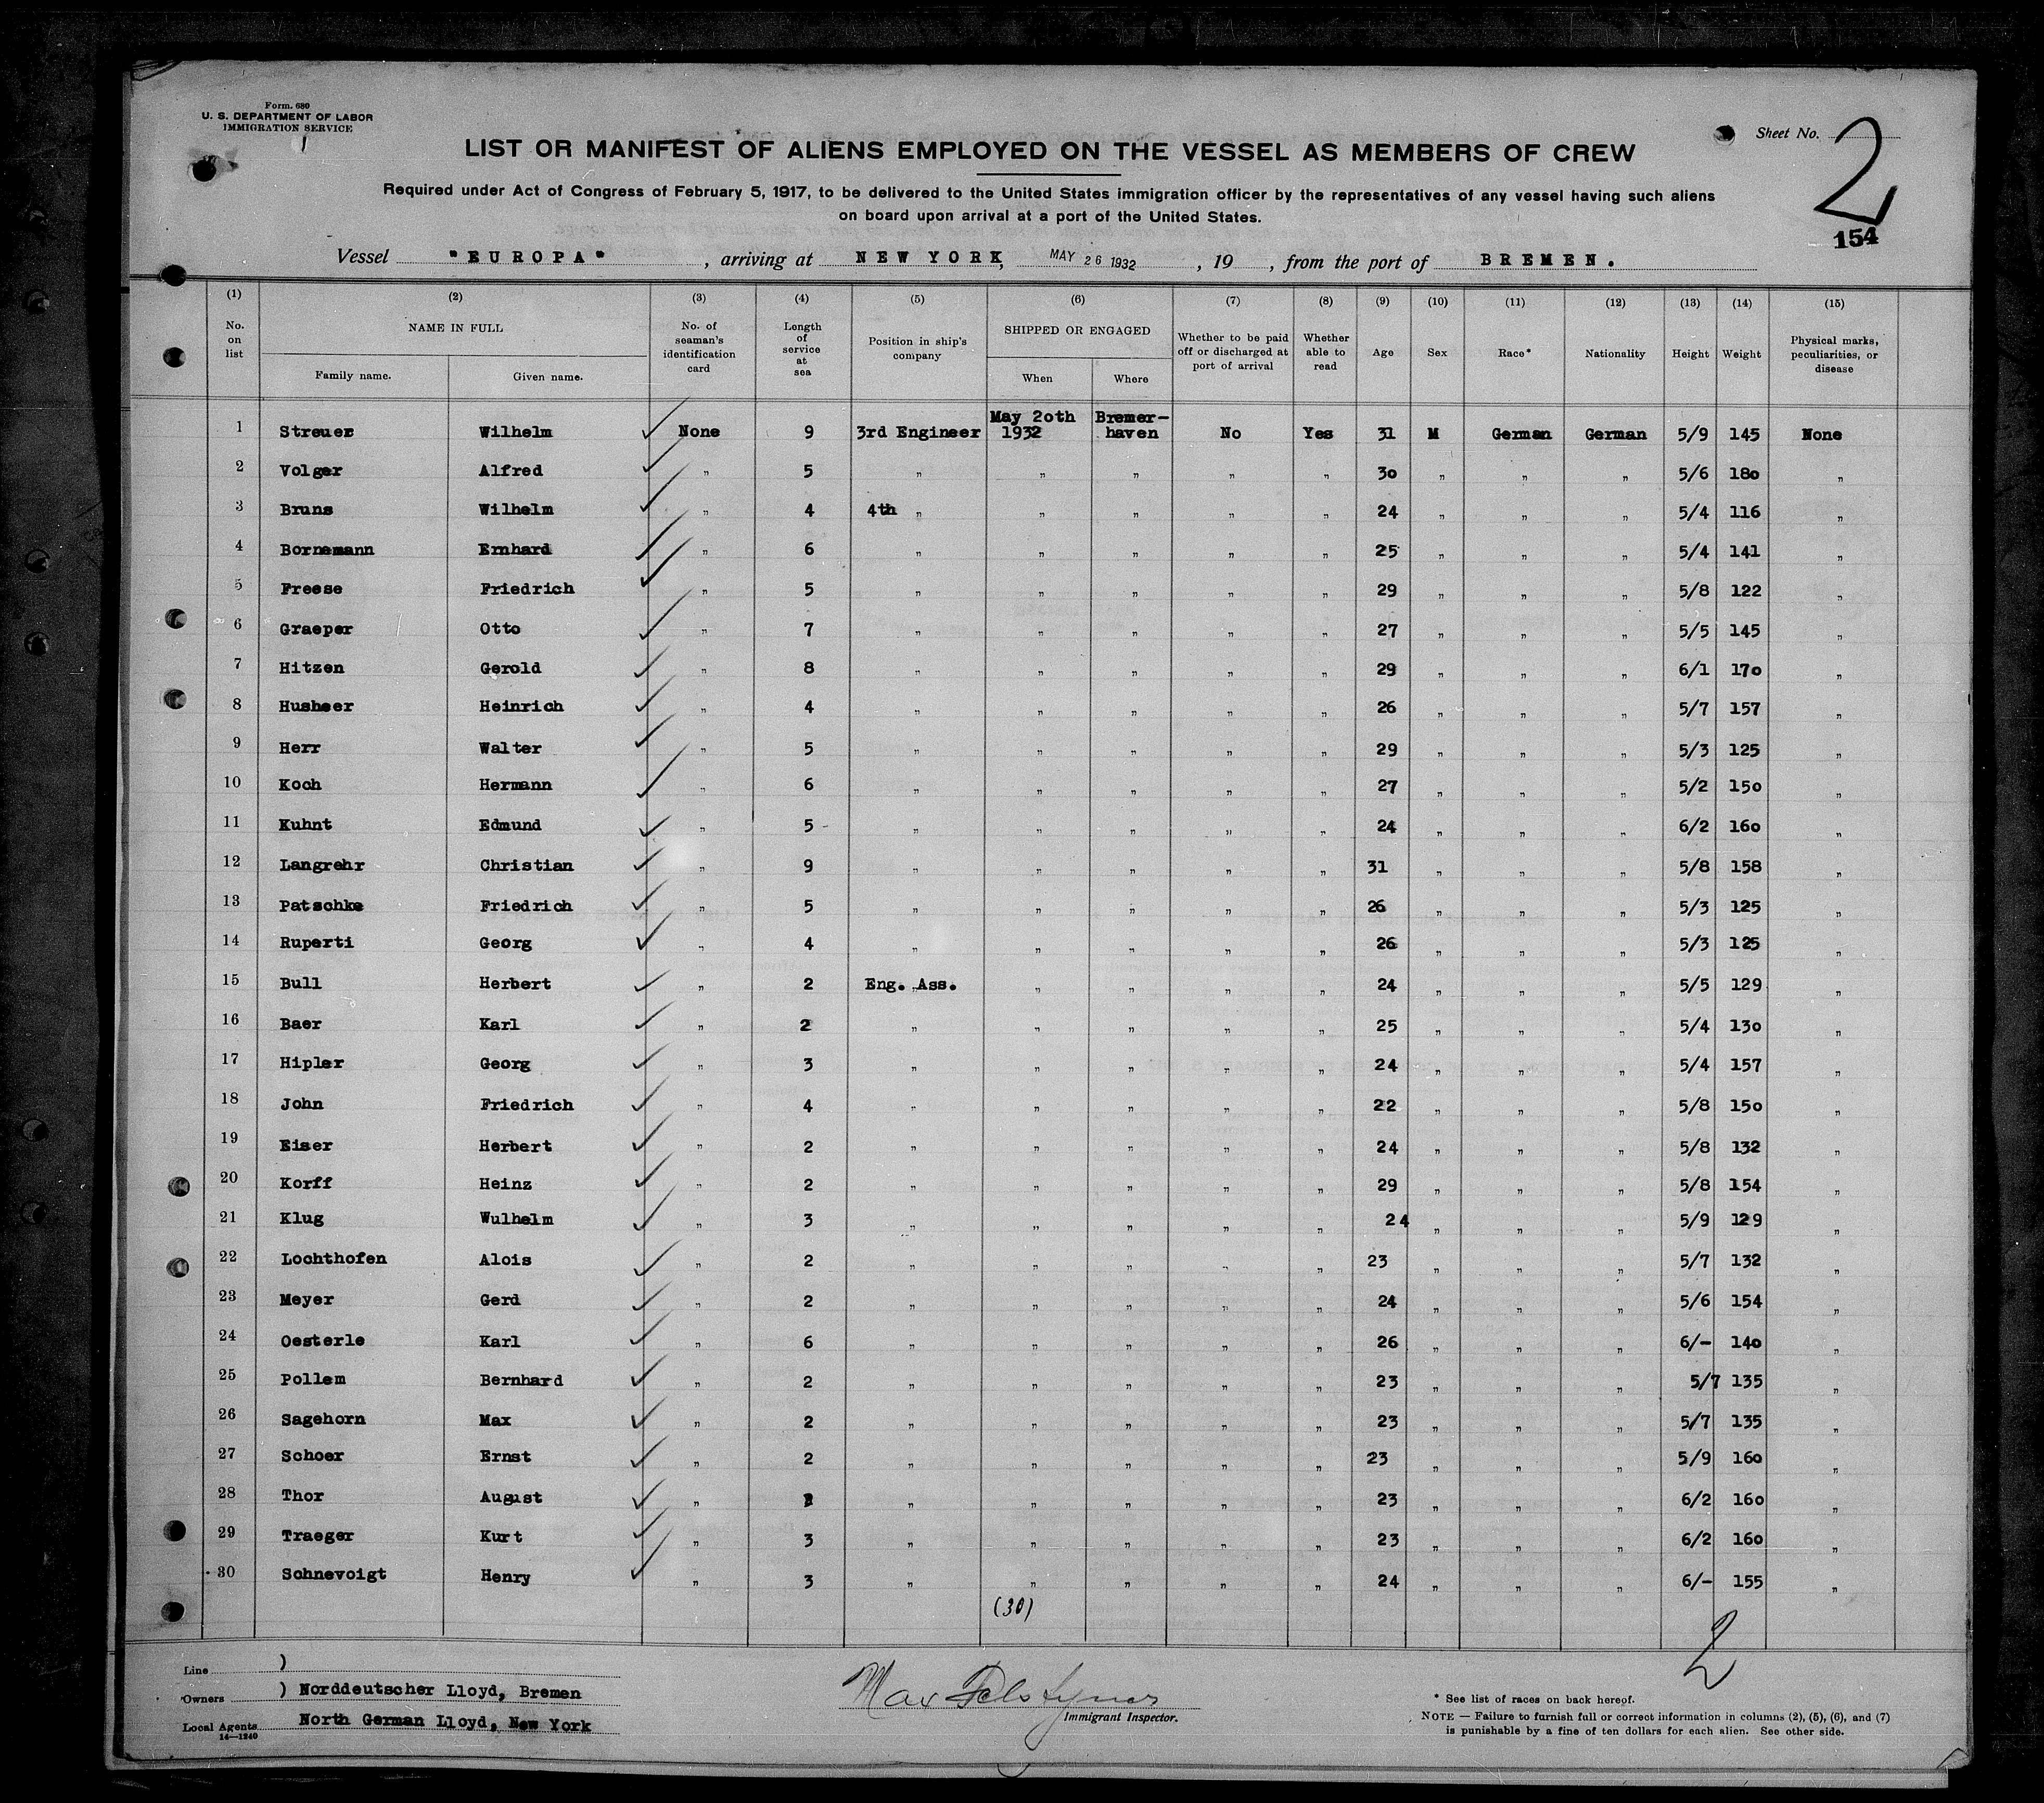 Form. 680
U. S. DEPARTMENT OF LABOR
IMMIGRATION SERVICE
Sheet No. 2
154
LIST OR MANIFEST OF ALIENS EMPLOYED ON THE VESSEL AS MEMBERS OF CREW
Required under Act of Congress of February 5, 1917, to be delivered to the United States immigration officer by the representatives of any vessel having such aliens
on board upon arrival at a port of the United States.
Vessel "EUROPA", arriving at NEW YORK, MAY 26 1932, 19 , from the port of BREMEN.
(1) (2) (3) (4) (5) (6) (7) (8) (9) (10) (11) (12) (13) (14) (15)
No. on list NAME IN FULL Family name. Given name. No. of seaman's identification card Length of service at sea Position in ship's company SHIPPED OR ENGAGED When Where Whether to be paid off or discharged at port of arrival Whether able to read Age Sex Race* Nationality Height Weight Physical marks, peculiarities, or disease
1 Streuer Wilhelm None 9 3rd Engineer May 20th 1932 Bremer-haven No Yes 31 M German German 5/9 145 None
2 Volger Alfred " 5 " " " " " 30 " " " 5/6 180 "
3 Bruns Wilhelm " 4 4th " " " " " 24 " " " 5/4 116 "
4 Bornemann Ernhard " 6 " " " " " 25 " " " 5/4 141 "
5 Freese Friedrich " 5 " " " " " 29 " " " 5/8 122 "
6 Graeper Otto " 7 " " " " " 27 " " " 5/5 145 "
7 Hitzen Gerold " 8 " " " " " 29 " " " 6/1 170 "
8 Husheer Heinrich " 4 " " " " " 26 " " " 5/7 157 "
9 Herr Walter " 5 " " " " " 29 " " " 5/3 125 "
10 Koch Hermann " 6 " " " " " 27 " " " 5/2 150 "
11 Kuhnt Edmund " 5 " " " " " 24 " " " 6/2 160 "
12 Langrehr Christian " 9 " " " " " 31 " " " 5/8 158 "
13 Patschke Friedrich " 5 " " " " " 26 " " " 5/3 125 "
14 Ruperti Georg " 4 " " " " " 26 " " " 5/3 125 "
15 Bull Herbert " 2 Eng. Ass. " " " " 24 " " " 5/5 129 "
16 Baer Karl " 2 " " " " " 25 " " " 5/4 130 "
17 Hipler Georg " 3 " " " " " 24 " " " 5/4 157 "
18 John Friedrich " 4 " " " " " 22 " " " 5/8 150 "
19 Eiser Herbert " 2 " " " " " 24 " " " 5/8 132 "
20 Korff Heinz " 2 " " " " " 29 " " " 5/8 154 "
21 Klug Wulhelm " 3 " " " " " 24 " " " 5/9 129 "
22 Lochthofen Alois " 2 " " " " " 23 " " " 5/7 132 "
23 Meyer Gerd " 2 " " " " " 24 " " " 5/6 154 "
24 Oesterle Karl " 6 " " " " " 26 " " " 6/- 140 "
25 Pollem Bernhard " 2 " " " " " 23 " " " 5/7 135 "
26 Sagehorn Max " 2 " " " " " 23 " " " 5/7 135 "
27 Schoer Ernst " 2 " " " " " 23 " " " 5/9 160 "
28 Thor August " 2 " " " " " 23 " " " 6/2 160 "
29 Traeger Kurt " 3 " " " " " 23 " " " 6/2 160 "
30 Schnevoigt Henry " 3 " " " " " 24 " " " 6/- 155 "
(30)
2
Line )
Owners ) Norddeutscher Lloyd, Bremen
Local Agents North German Lloyd, New York
14—1240
Max
Immigrant Inspector.
* See list of races on back hereof.
NOTE — Failure to furnish full or correct information in columns (2), (5), (6), and (7)
is punishable by a fine of ten dollars for each alien. See other side.